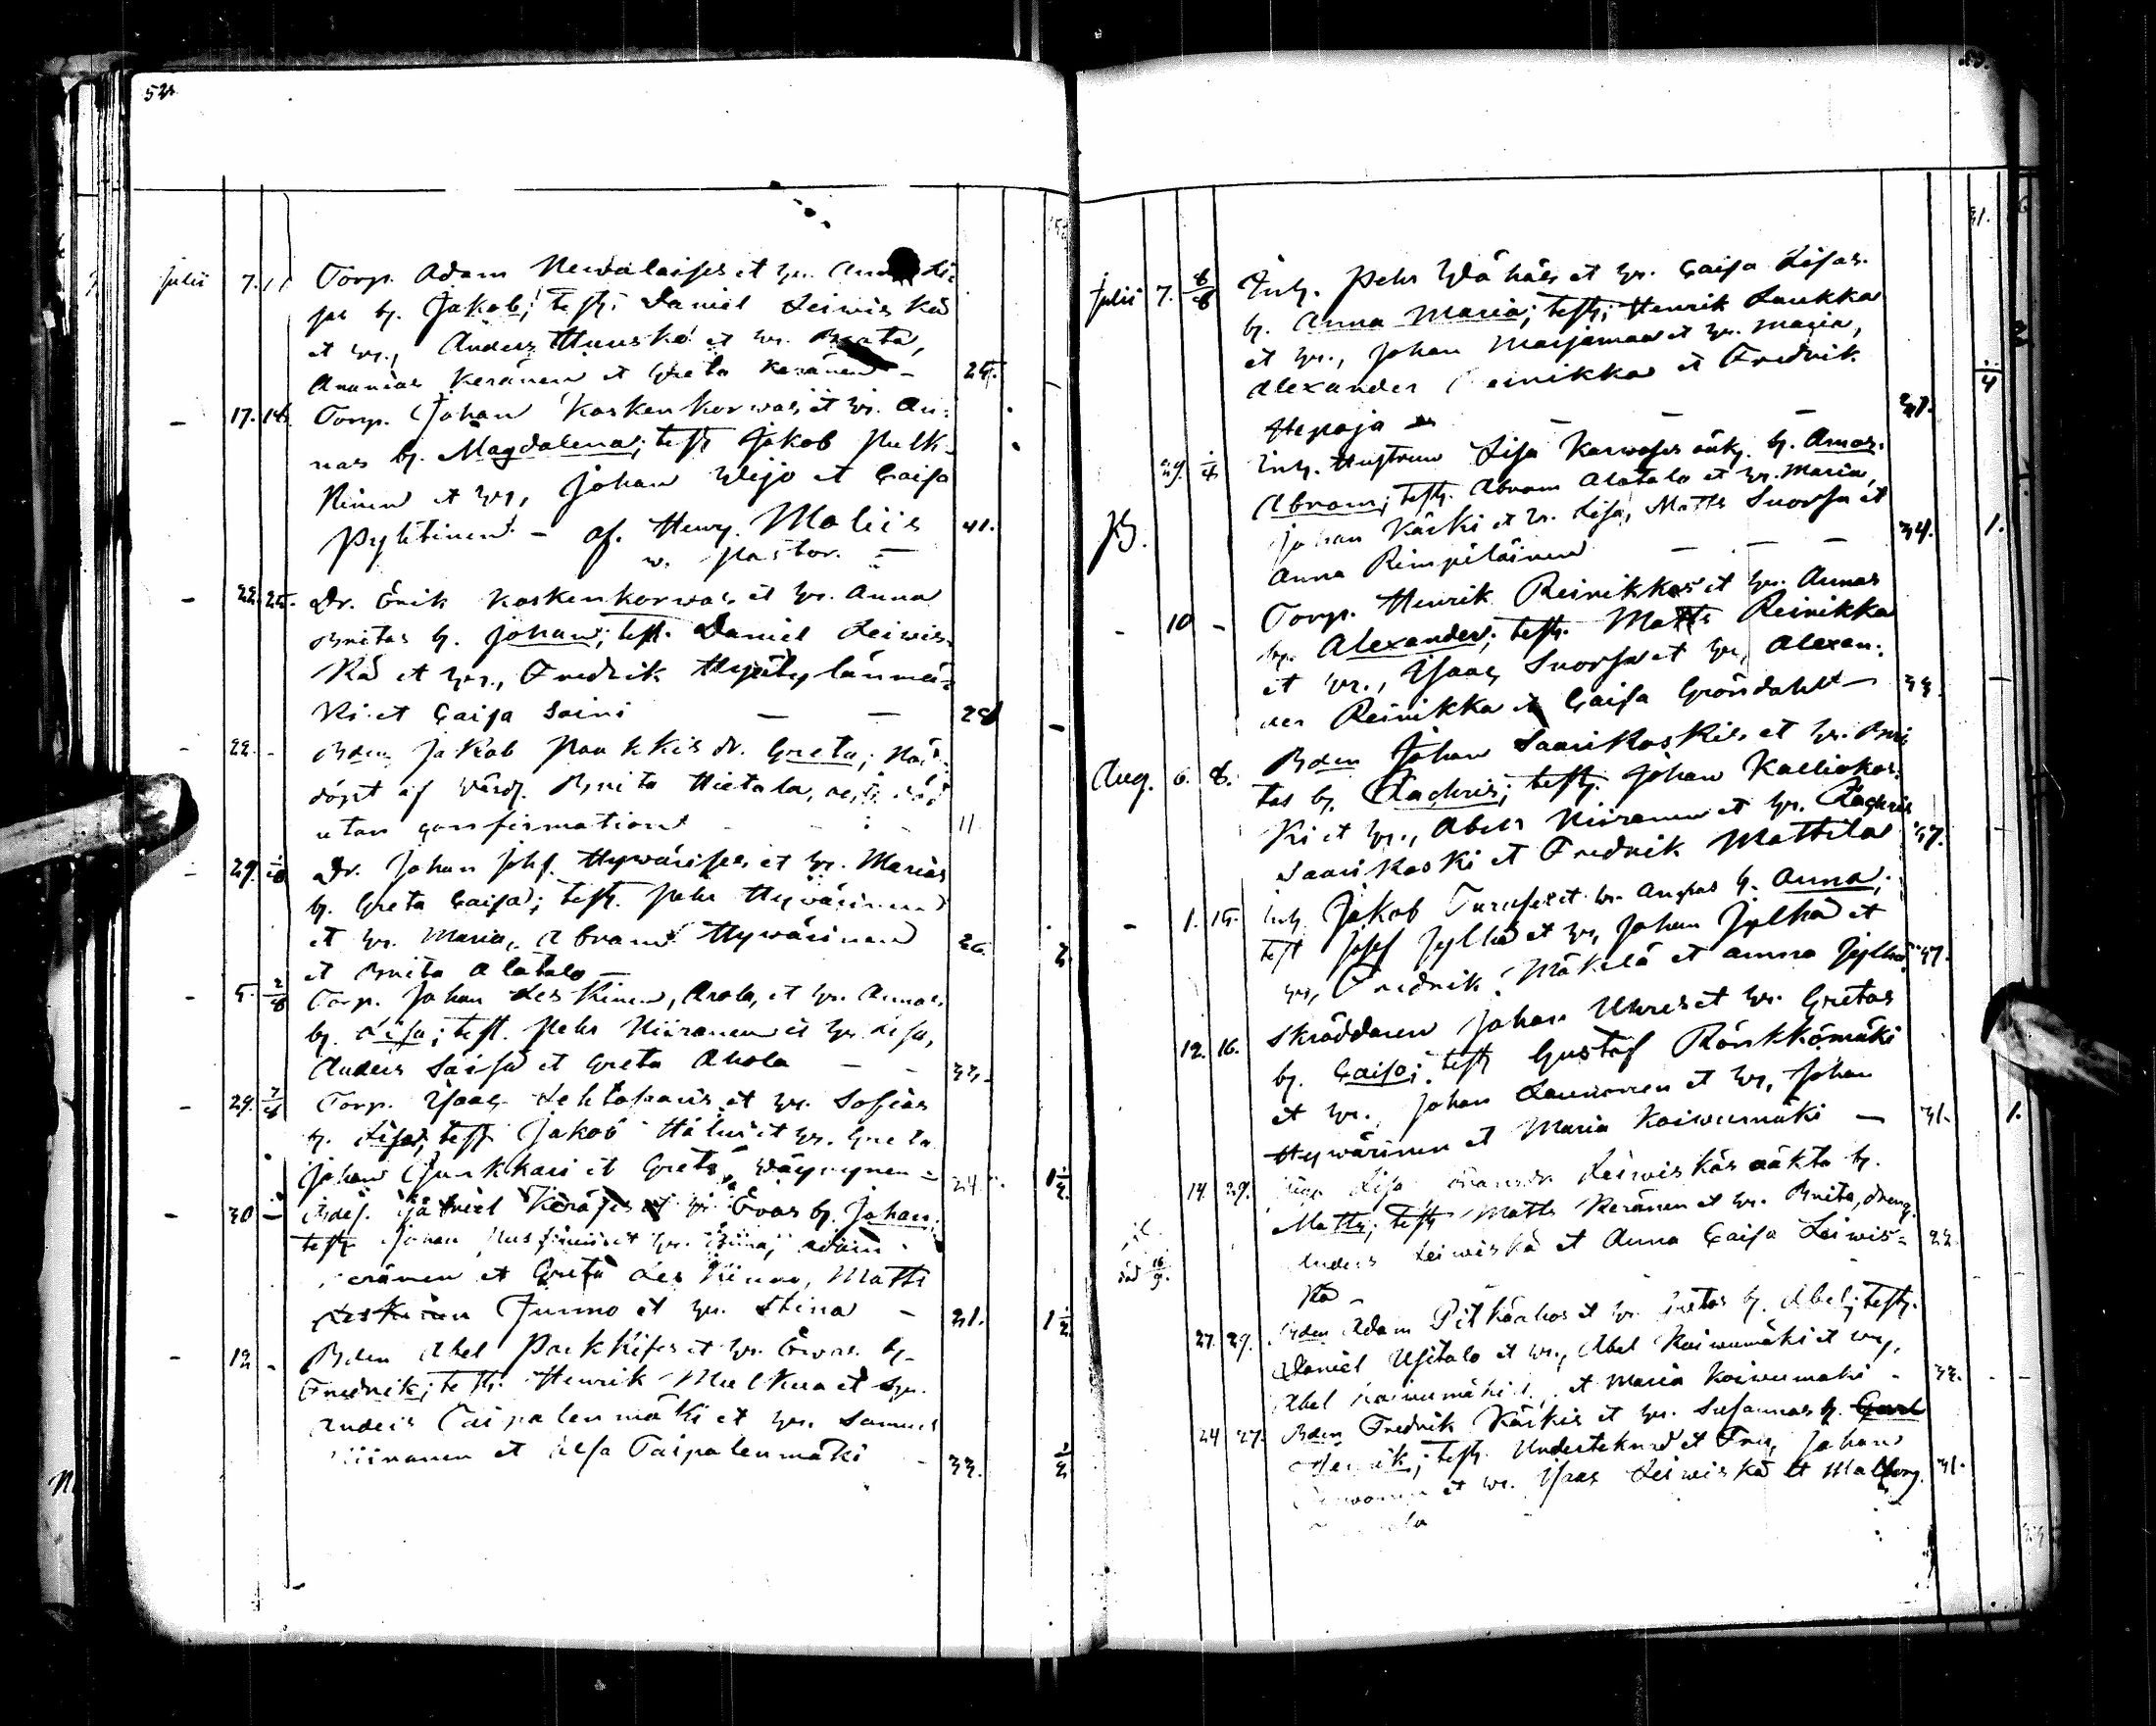 52.
Julii 7. 11 Torp. Adam Newalaises et hr. Anna Li-
sas b. Jakob; test. Daniel Leiwiskä
et hr., Anders Huusko et hr. Beata,
Ananias Keränen et Greta Keränen - 25.
- 17. 18. Torp. Johan Koskenkorwas et hr. An-
nas b. Magdalena; test Jakob Pulk-
kinen et hr, Johan Weijo et Caisa
Pyhtinen. - af. Henr. Moliis 41.
w. Pastor. -
- 22. 25. Dr. Erik Koskenkorwas et hr. Anna
Britas b. Johan; test. Daniel Leiwis-
kä et hr., Fredrik
ki et Caisa Soini - - 28
- 22. - Bden Jakob Paakkis dr. Greta; Nöd-
döpt af Wärdf. Brita Hietala,
utan confirmation - - 11.
- 29. Dr. Johan Johs. Hywärises et hr. Marias
b. Greta Caisa; test. Pehr Hywärinen
et hr. Maria, Abram Hywärinen 26.
et Brita Alatalo -
- 5. 2/8 Torp. Johan Leskinen, Arola, et hr. Annas
b. Lisa; test. Pehr Niiranen et hr. Lisa,
Anders Saisa et Greta Ahola - - 33.
- 29. 7/8 Torp. Isaac Lehtoharis et hr. Sofias
b. Lisa; test. Jakob et hr. Greta
Johan Junkkari et Greta Wäyrynen - 24
- 30 - et hr. Evas b. Johan;
test. Johan et hr. Stina, Adam
Keränen et Greta Leskinen, Matts
Leskinen Junno et hr. Stina - 31. 1 1/2
- 12 - Bden Abel Paakkises et hr. Evas b.
Fredrik; test. Henrik Mulkua et hr.
Anders Taipalenmäki et hr. Samuel
Niiranen et Lisa Taipalenmäki - 33.
31.
Julii 7. 8/8 Inh. Pehr Wähäs et hr. Caisa Lisas.
b. Anna Maria; test; Henrik Laukka
et hr., Johan Marjamaa et hr. Maria,
Alexander Reinikka et Fredrik
Hepoja - - - 37.
29. Inh. Hustrun Lisa Karwoses oäk. b. Amos.
Abram; test. Abram Alatalo et hr. Maria,
Johan Kärki et hr. Lisa, Matts Suorsa et
Anna Rimpiläinen - - - 34. 1.
- 10 - Torp. Henrik Reinikkas et hr. Annas
b. Alexander; test. Matts Reinikka
et hr., Isaac Suorsa et hr, Alexan-
der Reinikka et Caisa Gröndahl - 33.
Aug. 6. 8. Bden Johan Saarikoskis et hr. Bri
tas b. Zachris; test. Johan Kalliokos-
ki et hr., Abel Niiranen et hr. Zachris
Saarikoski et Fredrik Mattila 37.
- 1. 15. Inh. Jakob et hr. Annas b. Anna;
test Josef Jylhä et hr, Johan Jylhä et
hr, Fredrik Mäkelä et Anna Jylhä 37.
12. 16. Skräddaren Johan Uhres et hr. Gretas
b. Caisa; test Gustaf Rönkkömäki
et hr. Johan Launonen et hr, Johan
Hywärinen et Maria Koiwumäki - 31. 1.
14. 29. Lisa Leiwiskäs oäkta b.
Matts; test Matts Keränen et hr. Brita, dreng.
Anders Leiwiskä et Anna Caisa Leiwis- 22.
kä -
27. 29. Bden Adam Pitkäahos et hr. Gretas b. Abel; test.
Daniel Usitalo et hr., Abel Koiwumäki et hr,
Abel Koiwumäki et Maria Koiwumäki - 33.
24 27. Bden Fredrik Kärkis et hr. Susannas b. Carl
Henrik; test. Underteknad et Fru, Johan
et hr. Isac Leiwiskä et 31.